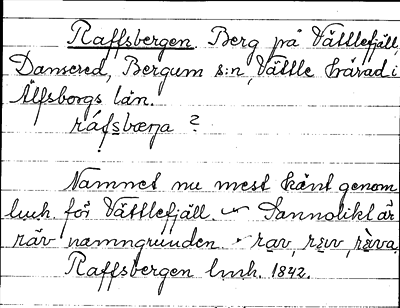 Raffsbergen. Berg på Vättlefjäll,
Dansered, Bergum s:n, Vättle härad i
Älfsborgs län.
ráfsbærja ?
Namnet nu mest känt genom
lmk. för Vättlefjäll. ~ Sannolikt är
räv namngrunden - rav, rɛvv, rɛ̀va.
Raffsbergen lmk. 1842.